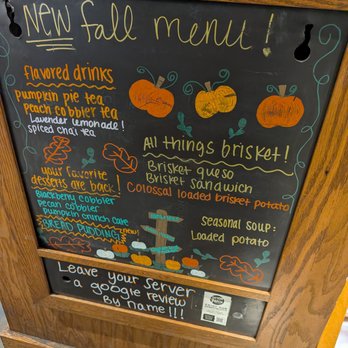 NEW fall menu!
flavored drinks
pumpkin pie tea
peach cobbler tea
Lavender lemonade!
spiced chai tea
All things brisket!
Brisket queso
Brisket sandwich
Colossal loaded brisket potato
your favorite
desserts are back!
Blackberry cobbler
Pecan cobbler
Pumpkin crunch cake
BREAD PUDDING
Seasonal soup:
Loaded potato
Leave your server
a google review
By name!!!